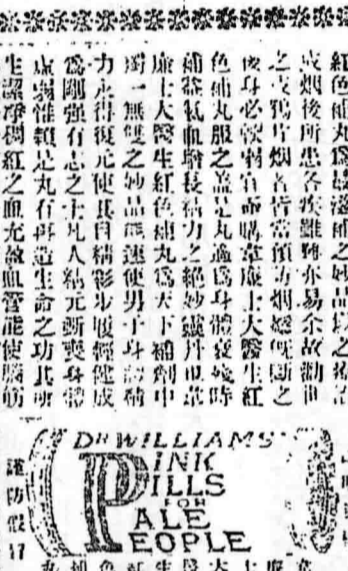 紅色補丸為最適補之妙品以之療治
戒烟後所患各疾雖難亦易余故勸世
之戒鴉片烟者皆當預防烟癮既斷之
後身必軟弱宜亟購韋廉士大醫生紅
色補丸服之蓋是丸適為身體衰殘時
補益氣血增長精力之絕妙靈丹也韋
廉士大醫生紅色補丸為天下補劑中
獨一無雙之妙品能速使男子身體精
力永得復元使其目精彩步履輕健成
為剛強有志之士凡人精元斲喪身體
虛弱惟賴是丸有再造生命之功其所
生潔淨稠紅之血充盈血管能使腦筋
DR WILLIAMS'
PINK
PILLS
FOR
PALE
PEOPLE
謹防假冒